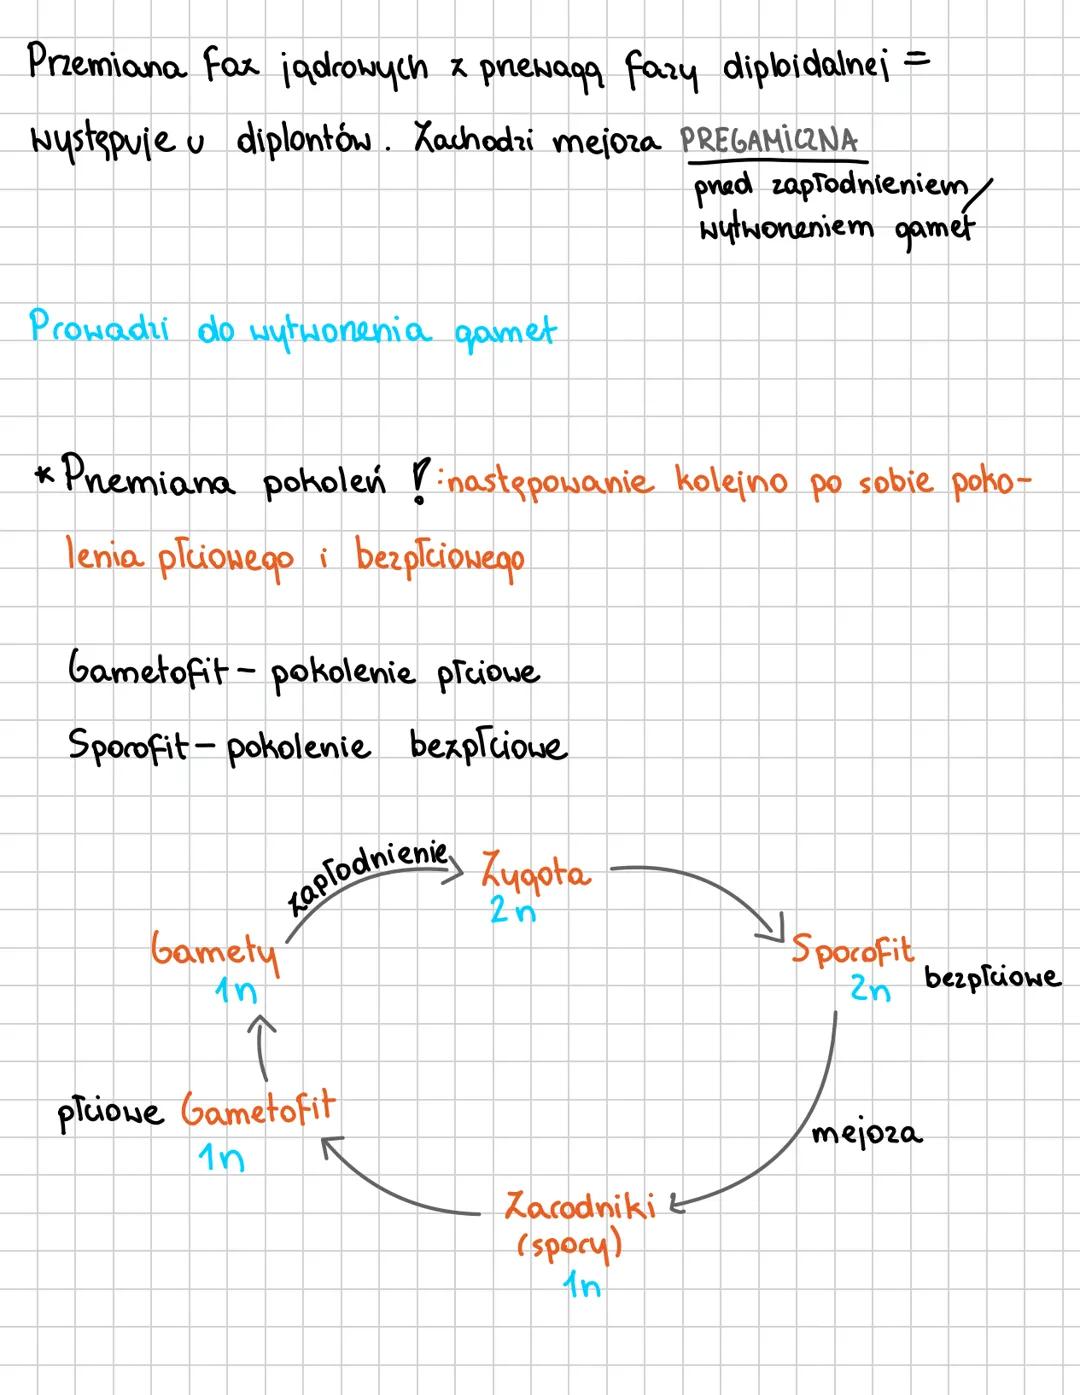 Przemiana faz jądrowych z przewagą fazy diploidalnej =
występuje u diplontów. Zachodzi mejoza PREGAMICZNA
przed zapłodnieniem/
wytworzeniem gamet
Prowadzi do wytworzenia gamet
* Przemiana pokoleń !: następowanie kolejno po sobie poko-
lenia płciowego i bezpłciowego
Gametofit - pokolenie płciowe
Sporofit - pokolenie bezpłciowe
zapłodnienie
Zygota
2n
Gamety
1n
Sporofit
2n
bezpłciowe
płciowe Gametofit
1n
mejoza
Zarodniki
(spory)
1n